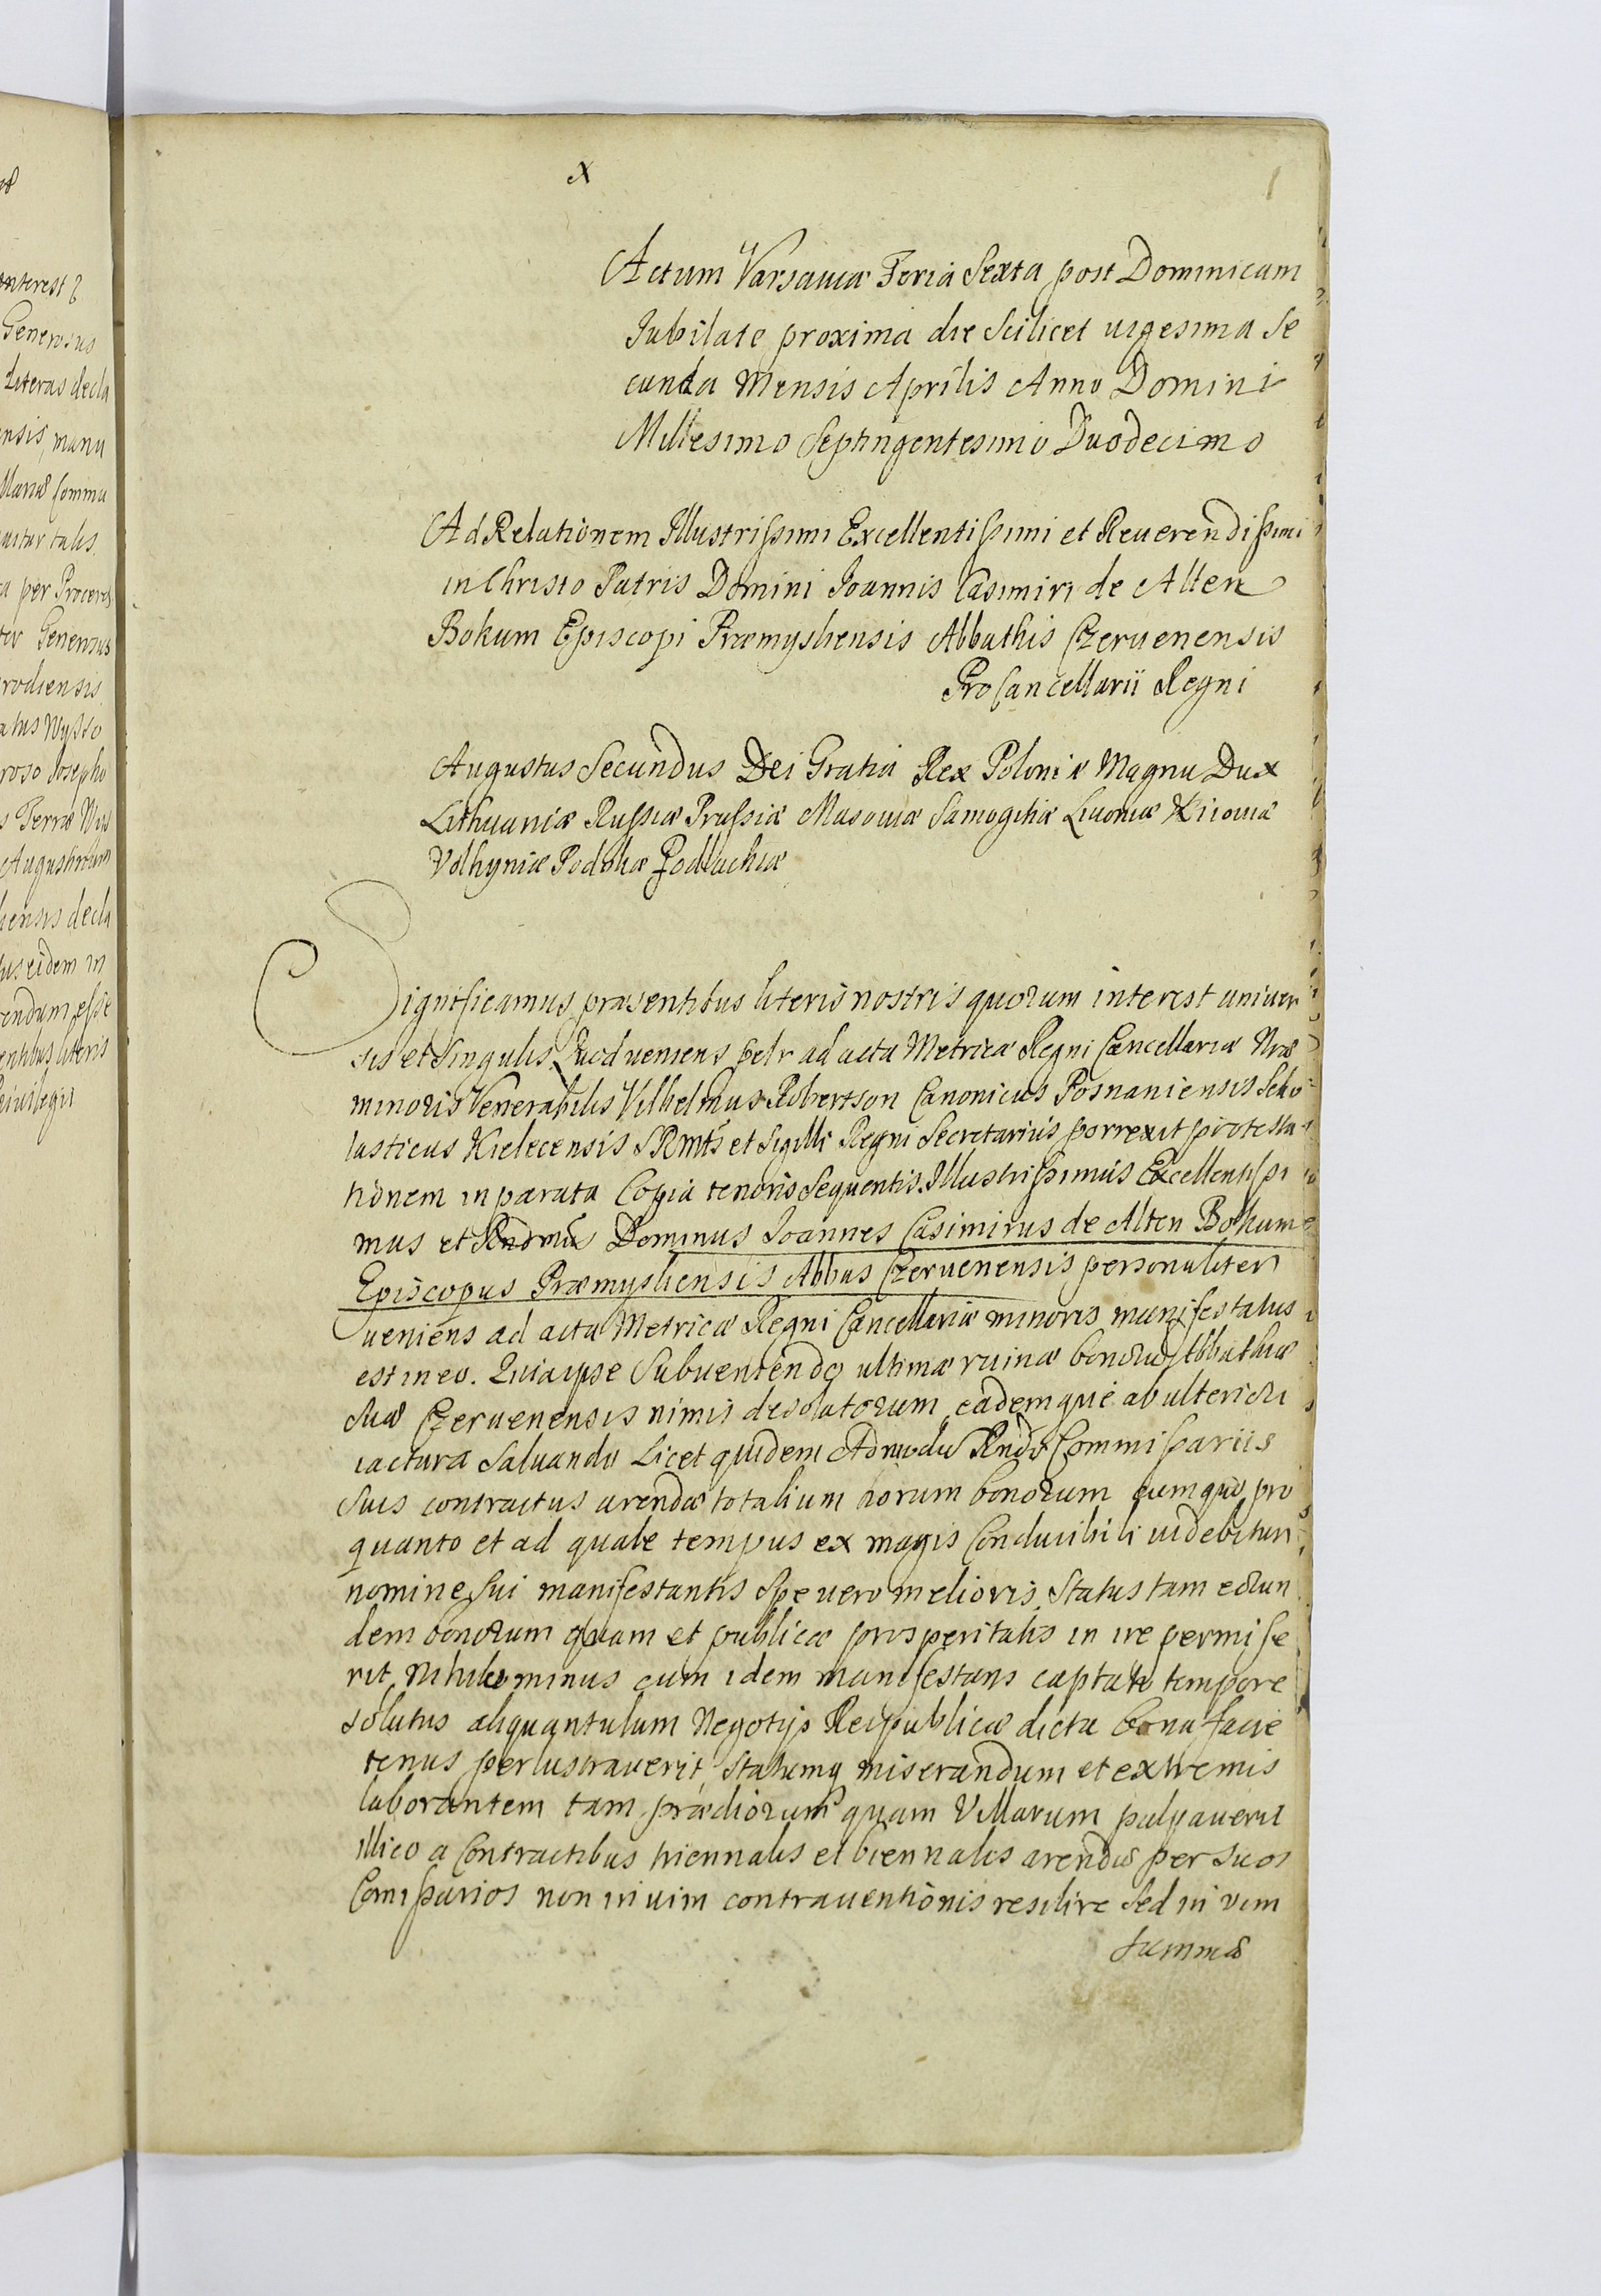 onterest
Generosus
Literas decla
ensis, manu
uitur talis.
a per Proceres
ter Generosus
rodiensis
atus Wysso
roso Josepho
s Terræ Wys
Augustinum
hensis decla
lus eidem in
endum esse
entibus literis
Priuilegii
X
1
Actum Varsauiæ Feria Sexta post Dominicam
Jubilate proxima die Scilicet uigesima Se
cunda Mensis Aprilis Anno Domini
Millesimo Septingentesimo Duodecimo
Ad Relationem Illustrissimi Excellentissimi et Reuerendissimi
in Christo Patris Domini Joannis Casimiri de Alten
Bokum Episcopi Præmysliensis Abbathis Czeruenensis
ProCancellarii Regni
Augustus Secundus Dei Gratia Rex Poloniæ Magnu Dux
Lithuaniæ Russiæ Prussiæ Masouiæ Samogitiæ Liuoniæ Kiiouiæ
Volhyniæ Podoliæ Podlachiæ
Significamus præsentibus literis nostris quorum interest uniuer
sis et Singulis, Quod ueniens petr ad acta Metricæ Regni Cancellariæ Nræ
minoris Venerabilis Vilhelmus Robertson Canonicus Posnaniensis Scho
lasticus Kielecensis SRMtis et Sigilli Regni Secretarius porrexit protesta
tionem in parata Copia tenoris Sequentis. Illustrissimus Excellentissi
mus et Rndmus Dominus Joannes Casimirus de Alten Bokum
Episcopus Præmysliensis Abbas Czeruenensis personaliter
ueniens ad acta Metricæ Regni Cancellariæ minoris manifestatus
est in eo. Quia ipse Subueniendo ultimæ ruinæ bonorũ Abbathiæ
Suæ Czeruenensis nimis desolatorum eademque ab ulteriori
iactura Saluando Licet quidem Admodũ Rndis Commissariis
Suis contractus arendæ totalium horum bonorum cumquo pro
quanto et ad quale tempus ex magis Conducibili uidebitur
nomine Sui manifestantis Spe uero melioris Status tam eorun
dem bonorum quam et publicæ prosperitatis in ire permise
rit, Nihilominus cum idem manifestans captato tempore
solutus aliquantulum Negotijs Reipublicæ dicta bona facie
tenus perlustrauerit, Statumq miserandum et extremis
laborantem tam prædiorum quam Villarum palpauerit
illico a Contractibus triennalis et biennalis arendæ per Suos
Comissarios non in uim contrauentionis resilire Sed in vim
Summæ